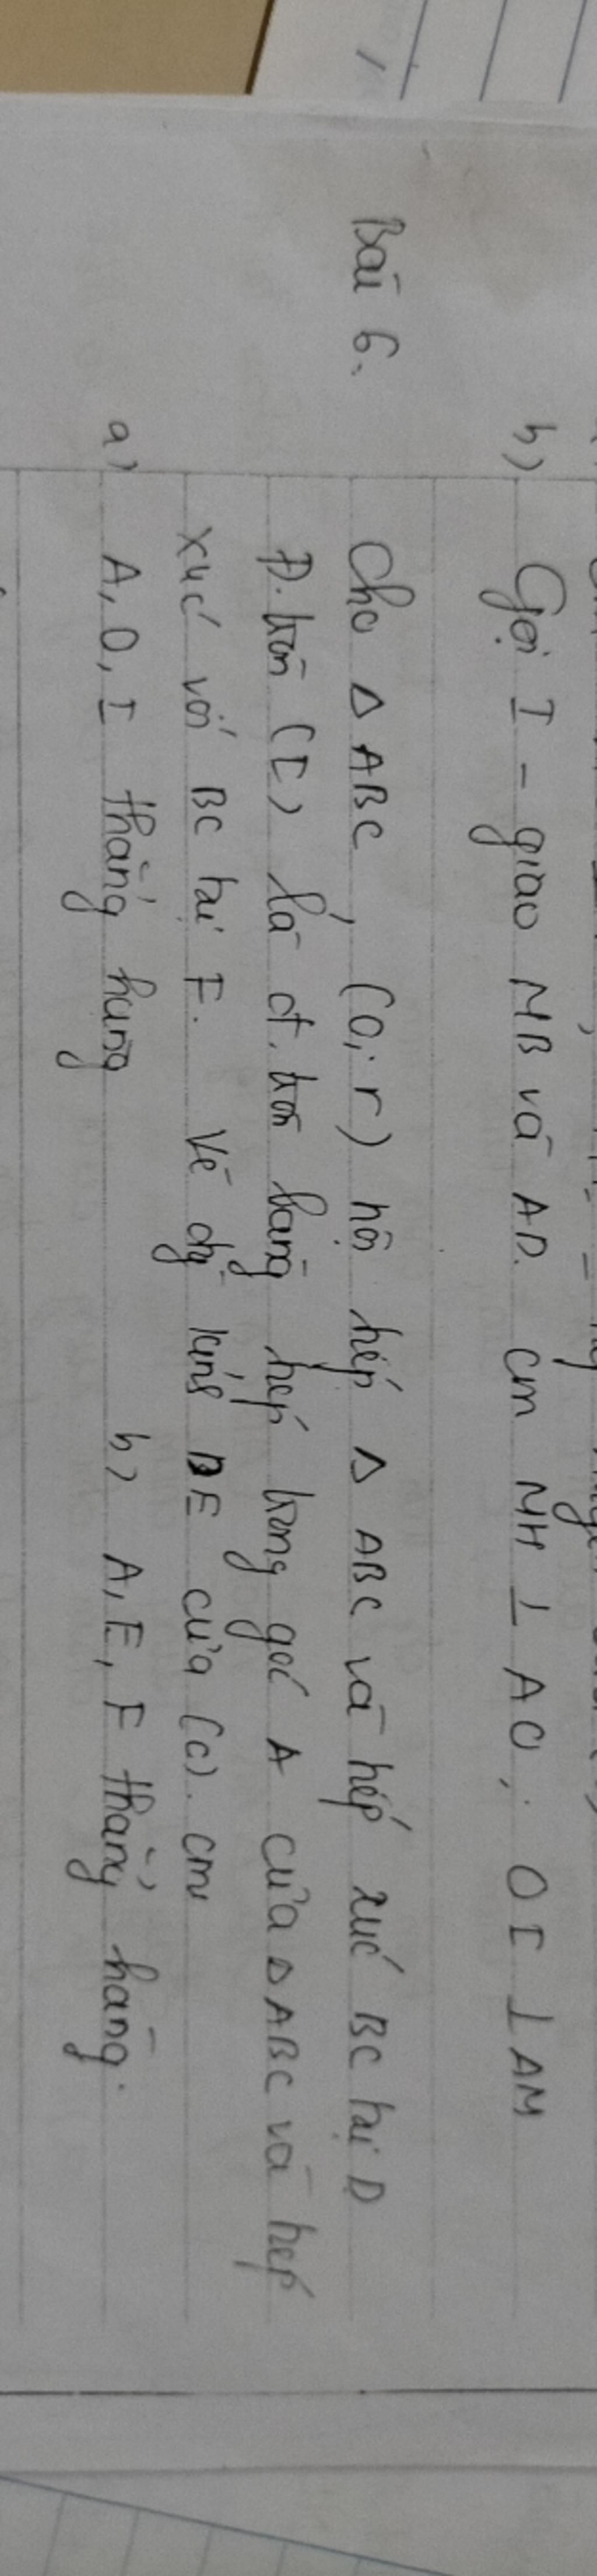 b) Gọi I - giao MB và AD. cm MH ⊥ AO; OI ⊥ AM
Bài 6. Cho Δ ABC, (O; r) nội tiếp Δ ABC và tiếp xúc BC tại D
Đ. tròn (I) là đ. tròn bàng tiếp trong góc A của Δ ABC và tiếp
xúc với BC tại F. Vẽ đg kính DE của (O). cm
a) A, O, I thẳng hàng b) A, E, F thẳng hàng.